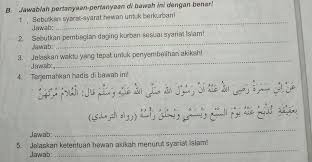 B. Jawablah pertanyaan-pertanyaan di bawah ini dengan benar!
1. Sebutkan syarat-syarat hewan untuk berkurban!
Jawab:
2. Sebutkan pembagian daging kurban sesuai syariat Islam!
Jawab:
3. Jelaskan waktu yang tepat untuk penyembelihan akikah!
Jawab:
4. Terjemahkan hadis di bawah ini!
عَنْ سَمُرَةَ رَضِيَ اللهُ عَنْهُ أَنَّ رَسُوْلَ اللهِ صَلَّى اللهُ عَلَيْهِ وَسَلَّمَ قَالَ: الْغُلَامُ مُرْتَهَنٌ
بِعَقِيْقَتِهِ تُذْبَحُ عَنْهُ يَوْمَ السَّابِعِ وَيُسَمَّى وَيُحْلَقُ رَأْسُهُ (رواه الترمذي)
Jawab:
5. Jelaskan ketentuan hewan akikah menurut syariat Islam!
Jawab: